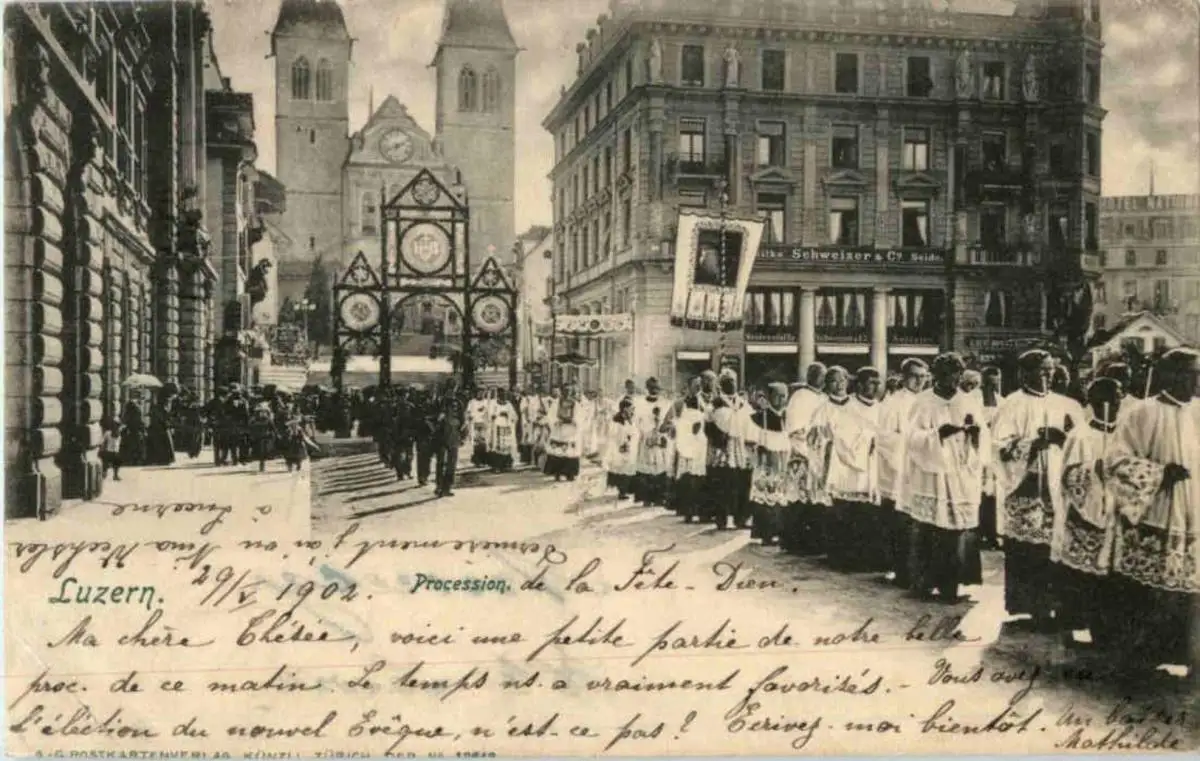 HOTEL
Schweizer & Co. Seide
Dernièrement j'ai vu Nina Wechsler
à Lucerne
Luzern. 29/V 1902. Procession. de la Fête-Dieu.
Ma chère Thésée, voici une petite partie de notre belle
proc. de ce matin. Le temps ns. a vraiment favorisés. - Vous avez eu
l'élection du nouvel Evêque, n'est-ce pas? Écrivez-moi bientôt. Un baiser
Mathilde
A.-G. POSTKARTENVERLAG KÜNZLI, ZÜRICH, DEP. No.